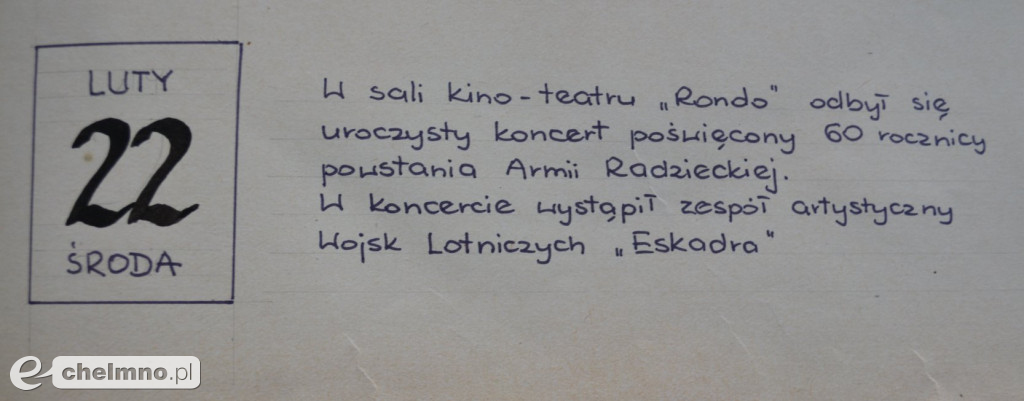 LUTY
22
ŚRODA
W sali kino-teatru „Rondo" odbył się
uroczysty koncert poświęcony 60 rocznicy
powstania Armii Radzieckiej.
W koncercie wystąpił zespół artystyczny
Wojsk Lotniczych „Eskadra"
e chelmno.pl